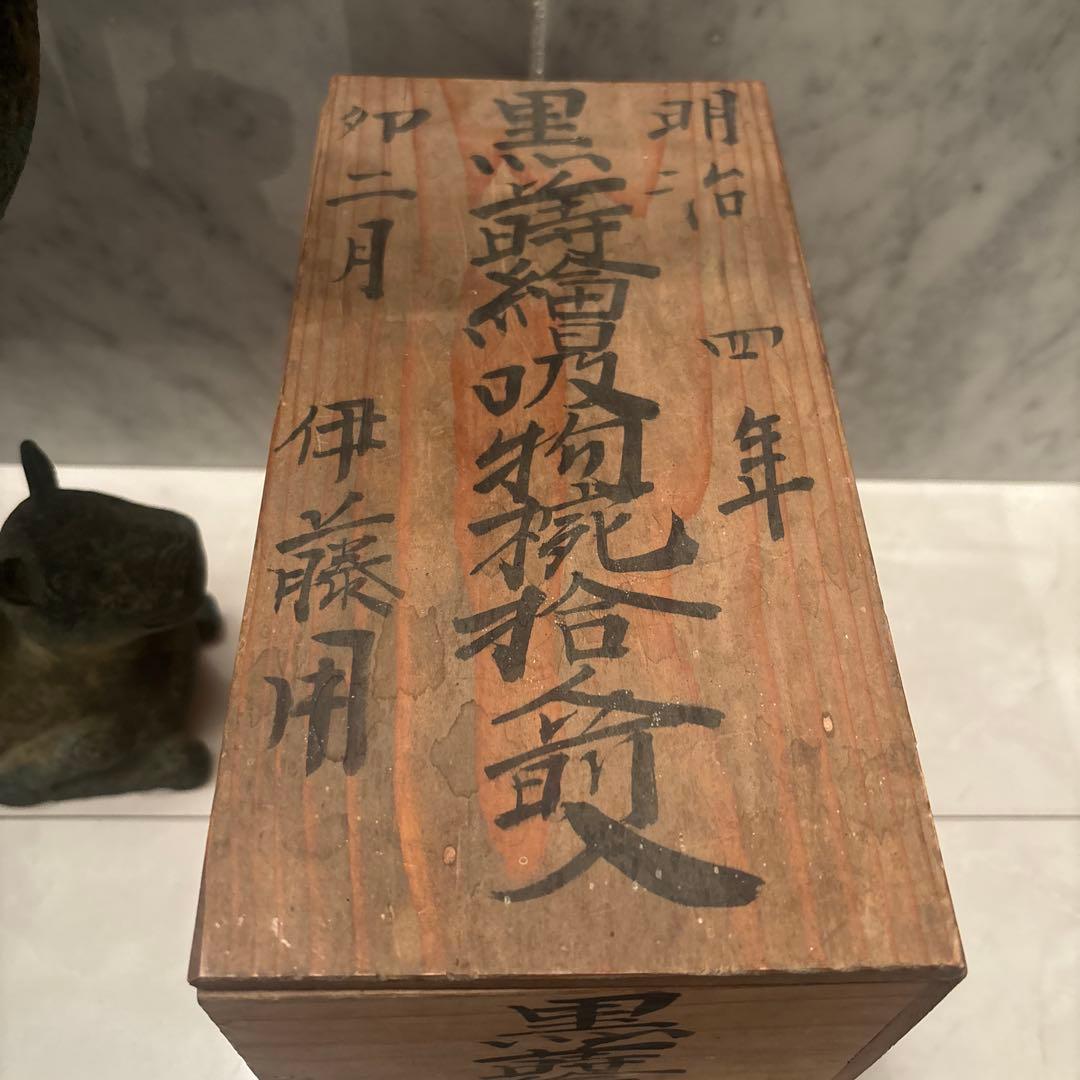 明治四年
黒蒔繪吸物椀拾人前入
卯二月 伊藤用
黒蒔